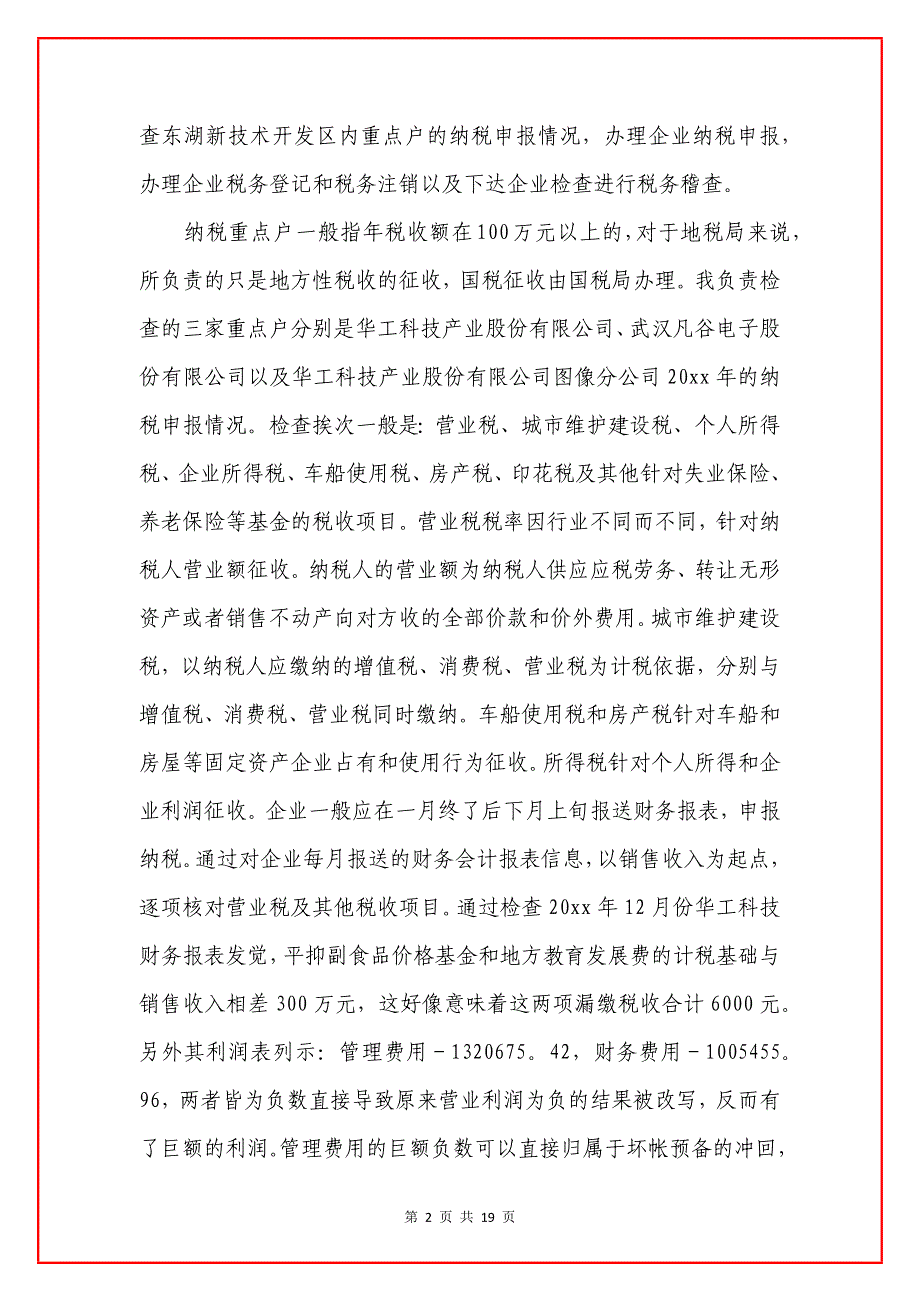 查东湖新技术开发区内重点户的纳税申报情况，办理企业纳税申报，
办理企业税务登记和税务注销以及下达企业检查进行税务稽查。
纳税重点户一般指年税收额在 100 万元以上的，对于地税局来说，
所负责的只是地方性税收的征收，国税征收由国税局办理。我负责检
查的三家重点户分别是华工科技产业股份有限公司、武汉凡谷电子股
份有限公司以及华工科技产业股份有限公司图像分公司 20xx 年的纳
税申报情况。检查挨次一般是：营业税、城市维护建设税、个人所得
税、企业所得税、车船使用税、房产税、印花税及其他针对失业保险、
养老保险等基金的税收项目。营业税税率因行业不同而不同，针对纳
税人营业额征收。纳税人的营业额为纳税人供应应税劳务、转让无形
资产或者销售不动产向对方收的全部价款和价外费用。城市维护建设
税，以纳税人应缴纳的增值税、消费税、营业税为计税依据，分别与
增值税、消费税、营业税同时缴纳。车船使用税和房产税针对车船和
房屋等固定资产企业占有和使用行为征收。所得税针对个人所得和企
业利润征收。企业一般应在一月终了后下月上旬报送财务报表，申报
纳税。通过对企业每月报送的财务会计报表信息，以销售收入为起点，
逐项核对营业税及其他税收项目。通过检查 20xx 年 12 月份华工科技
财务报表发觉，平抑副食品价格基金和地方教育发展费的计税基础与
销售收入相差 300 万元，这好像意味着这两项漏缴税收合计 6000 元。
另外其利润表列示：管理费用－1320675。42，财务费用－1005455。
96，两者皆为负数直接导致原来营业利润为负的结果被改写，反而有
了巨额的利润。管理费用的巨额负数可以直接归属于坏帐预备的冲回，
第 2 页 共 19 页